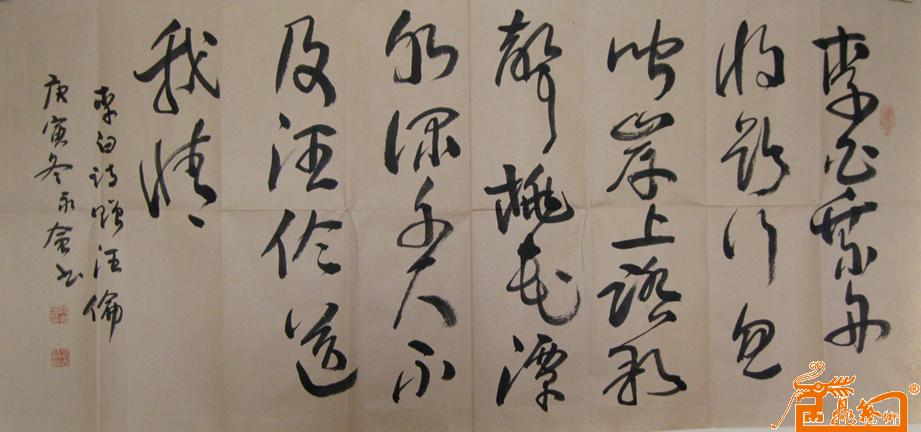 李白乘舟
将欲行忽
闻岸上踏歌
声桃花潭
水深千尺不
及汪伦送
我情
李白诗赠汪倫
庚寅冬永书